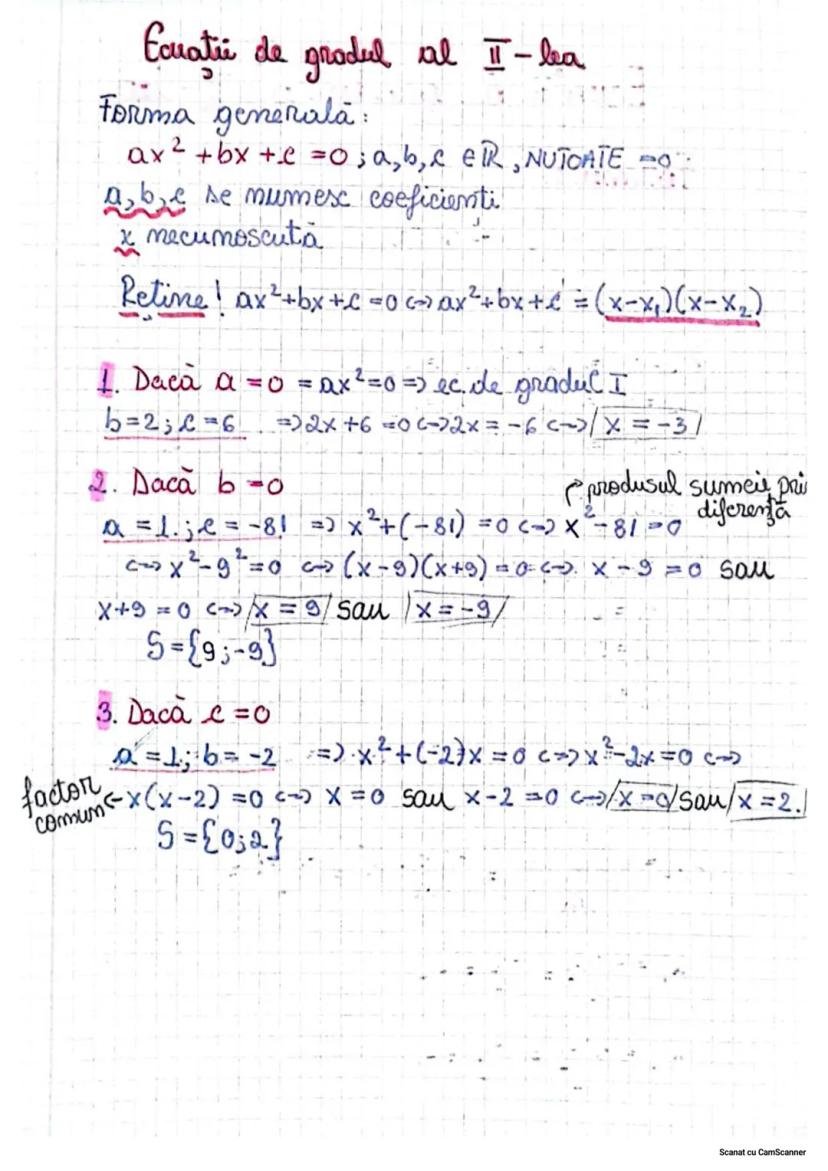 Ecuații de gradul al II-lea
Forma generală:
ax² + bx + c = 0 ; a, b, c ∈ ℝ, NU TOATE = 0
a, b, c se numesc coeficienți
x necunoscută
Reține! ax²+bx+c = 0 <=> ax²+bx+c = (x-x₁)(x-x₂)
1. Dacă a = 0 = ax² = 0 => ec. de gradul I
b = 2 ; c = 6 => 2x + 6 = 0 <=> 2x = -6 <=> x = -3
2. Dacă b = 0
produsul sumei pri
diferență
a = 1. ; c = -81 => x² + (-81) = 0 <=> x² - 81 = 0
<=> x² - 9² = 0 <=> (x-9)(x+9) = 0 <=> x - 9 = 0 sau
x+9 = 0 <=> x = 9 sau x = -9
S = {9 ; -9}
3. Dacă c = 0
a = 1 ; b = -2 => x² + (-2)x = 0 <=> x² - 2x = 0 <=>
factor comun ← x(x-2) = 0 <=> x = 0 sau x - 2 = 0 <=> x = 0 sau x = 2.
S = {0 ; 2}
Scanat cu CamScanner